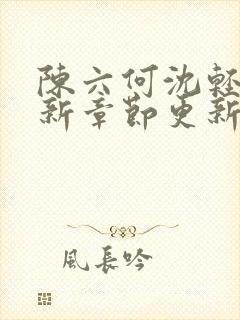 陳六何沈輕
新章節更新
風長吟